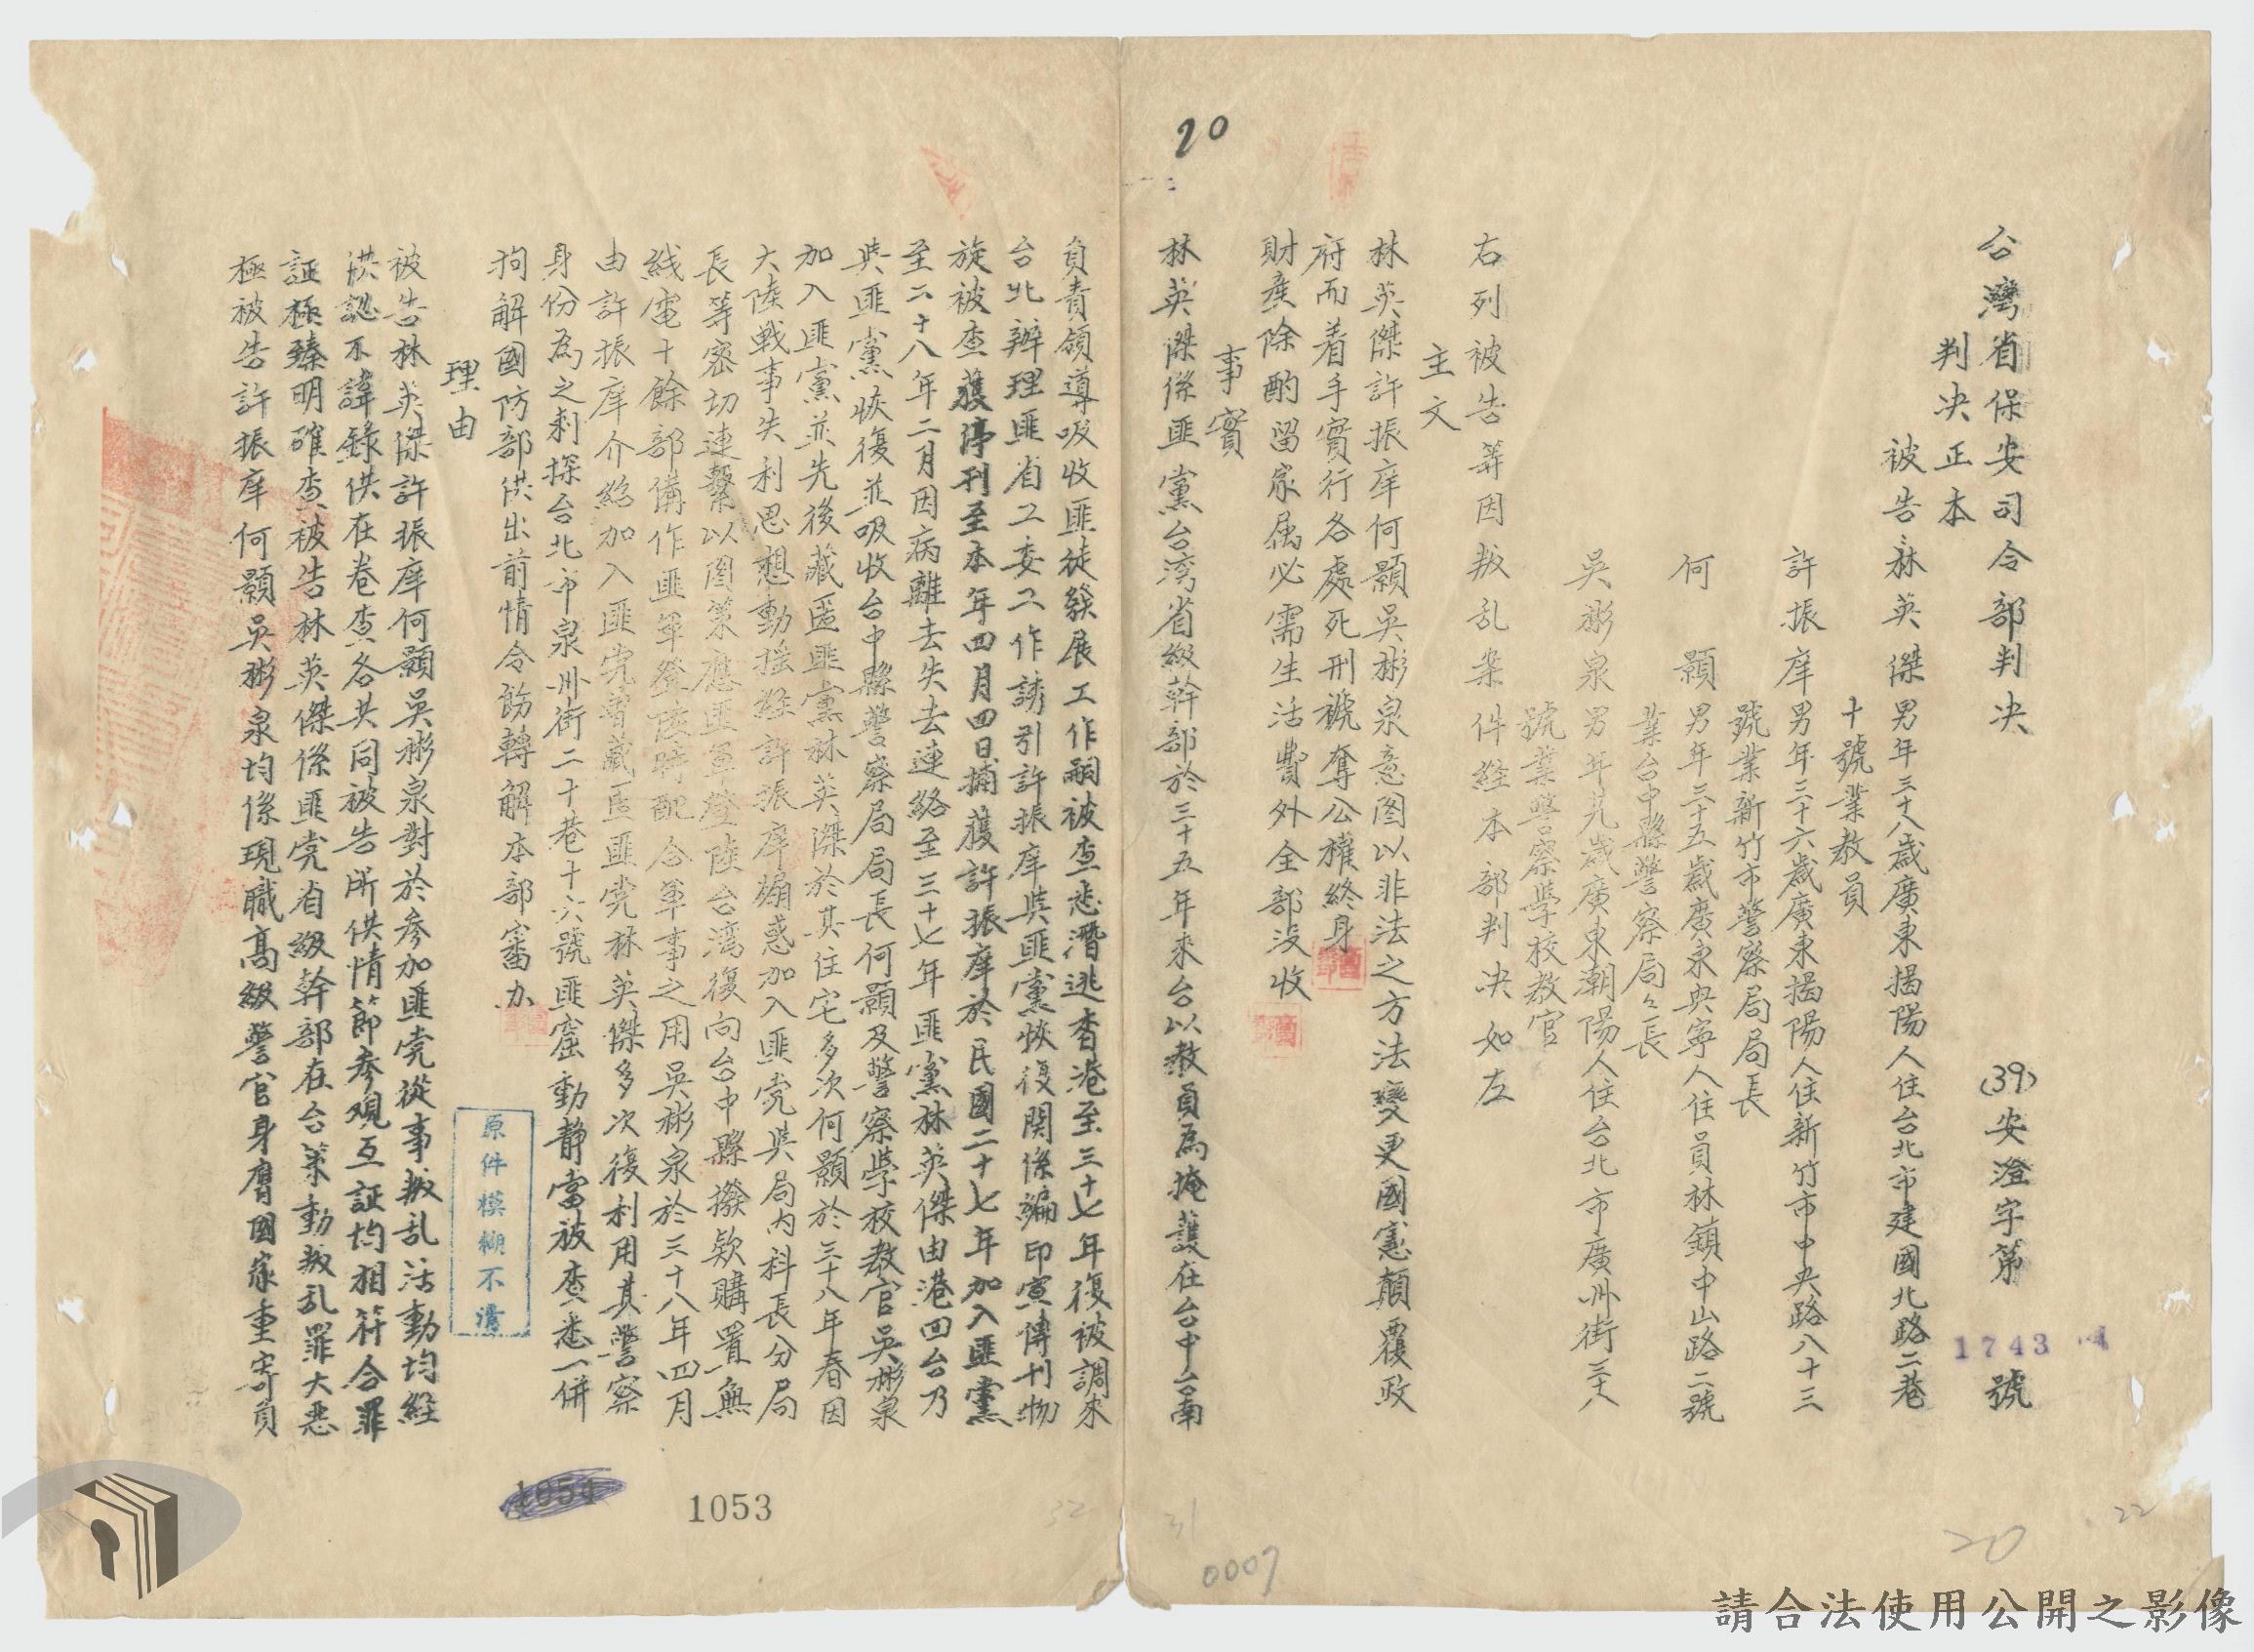 台灣省保安司令部判决　(39)安澄字第1743號
判决正本
被告林英傑男年三十八歲廣東揭陽人住台北市建國北路二巷
十號業教員
許振庠男年三十六歲廣東揭陽人住新竹市中央路八十三
號業新竹市警察局局長
何顯男年三十五歲廣東興寧人住員林鎮中山路二號
業台中縣警察局々長
吳彬泉男年卅九歲廣東潮陽人住台北市廣州街三十八
號業警察學校教官
右列被告等因叛乱案件経本部判决如左
主文
林英傑許振庠何顯吳彬泉意图以非法之方法變更國憲顛覆政
府而着手實行各處死刑褫奪公權終身
財產除酌留家属必需生活費外全部沒收
事實
林英傑係匪黨台湾省級幹部於三十五年來台以教員為掩護在台中台南
負責領導吸收匪徒發展工作嗣被查悉潛逃香港至三十七年復被調來
台北辦理匪省工委工作誘引許振庠與匪黨恢復関係編印宣傳刊物
旋被查獲停刊至本年四月四日捕獲許振庠於民國二十七年加入匪黨
至二十八年二月因病離去失去連絡至三十七年匪黨林英傑由港回台乃
與匪黨恢復並吸收台中縣警察局局長何顯及警察學校教官吳彬泉
加入匪黨並先後藏匿匪黨林英傑於其住宅多次何顯於三十八年春因
大陸戰事失利思想動搖経許振庠煽惑加入匪党與局内科長分局
長等密切連繫以图策應匪軍登陸台湾復向台中縣撥欵購置無
綫電十餘部備作匪軍登陸時配合軍事之用吳彬泉於三十八年四月
由許振庠介紹加入匪党曾藏匿匪党林英傑多次復利用其警察
身份為之刺探台北市泉州街二十巷十六號匪窟動静當被查悉一併
拘解國防部供出前情令飭轉解本部審办
理由
被告林英傑許振庠何顯吳彬泉對於参加匪党從事叛乱活動均経
供認不諱錄供在卷查各共同被告所供情節参观互証均相符合罪
証極臻明確查被告林英傑係匪党省級幹部在台策動叛乱罪大惡
極被告許振庠何顯吳彬泉均係現職高級警官身膺國家重寄負
原件模糊不清
20
1053
1054
32
31
0007
20
22
請合法使用公開之影像